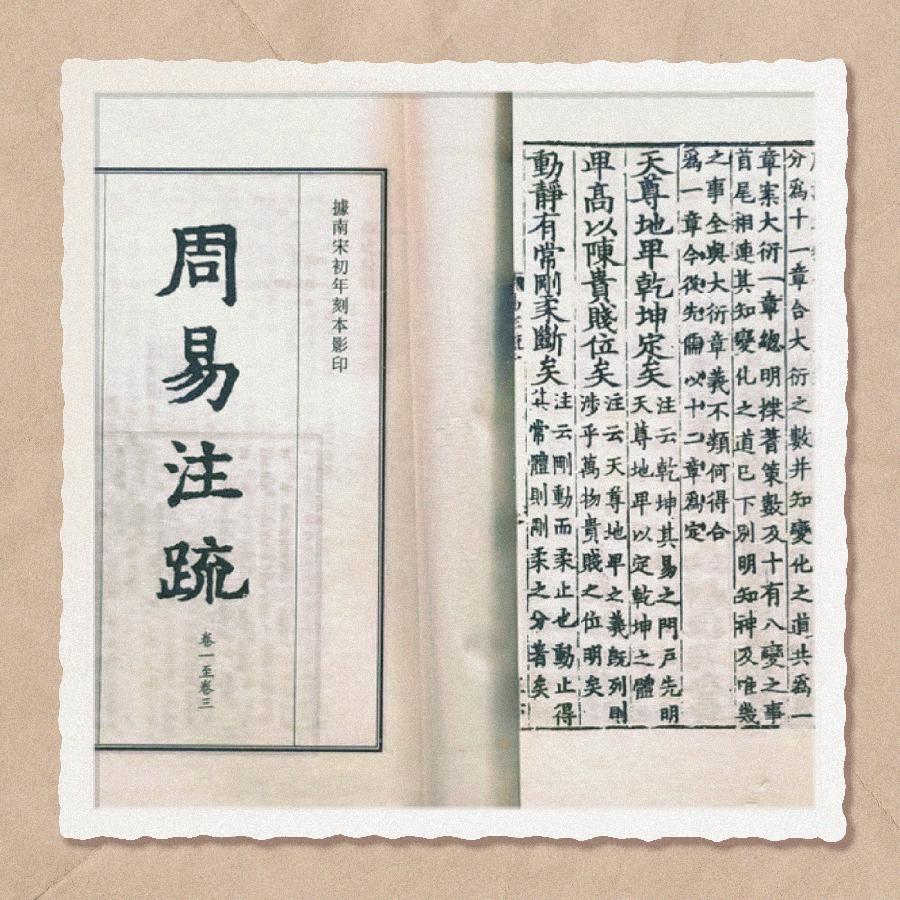 據南宋初年刻本影印
周易注疏
卷一至卷三
分爲十一章合大衍之數并知變化之道共爲一
章案大衍一章總明揲蓍策數及十有八變之事
首尾相連其知變化之道已下別明知神及唯幾
之事全與大衍章義不類何得合
爲一章今從先儒以十二章爲定
天尊地卑乾坤定矣
注云乾坤其易之門戶先明
天尊地卑以定乾坤之體
卑高以陳貴賤位矣
注云天尊地卑之義既列則
涉乎萬物貴賤之位明矣
動靜有常剛柔斷矣
注云剛動而柔止也動止得
其常體則剛柔之分著矣